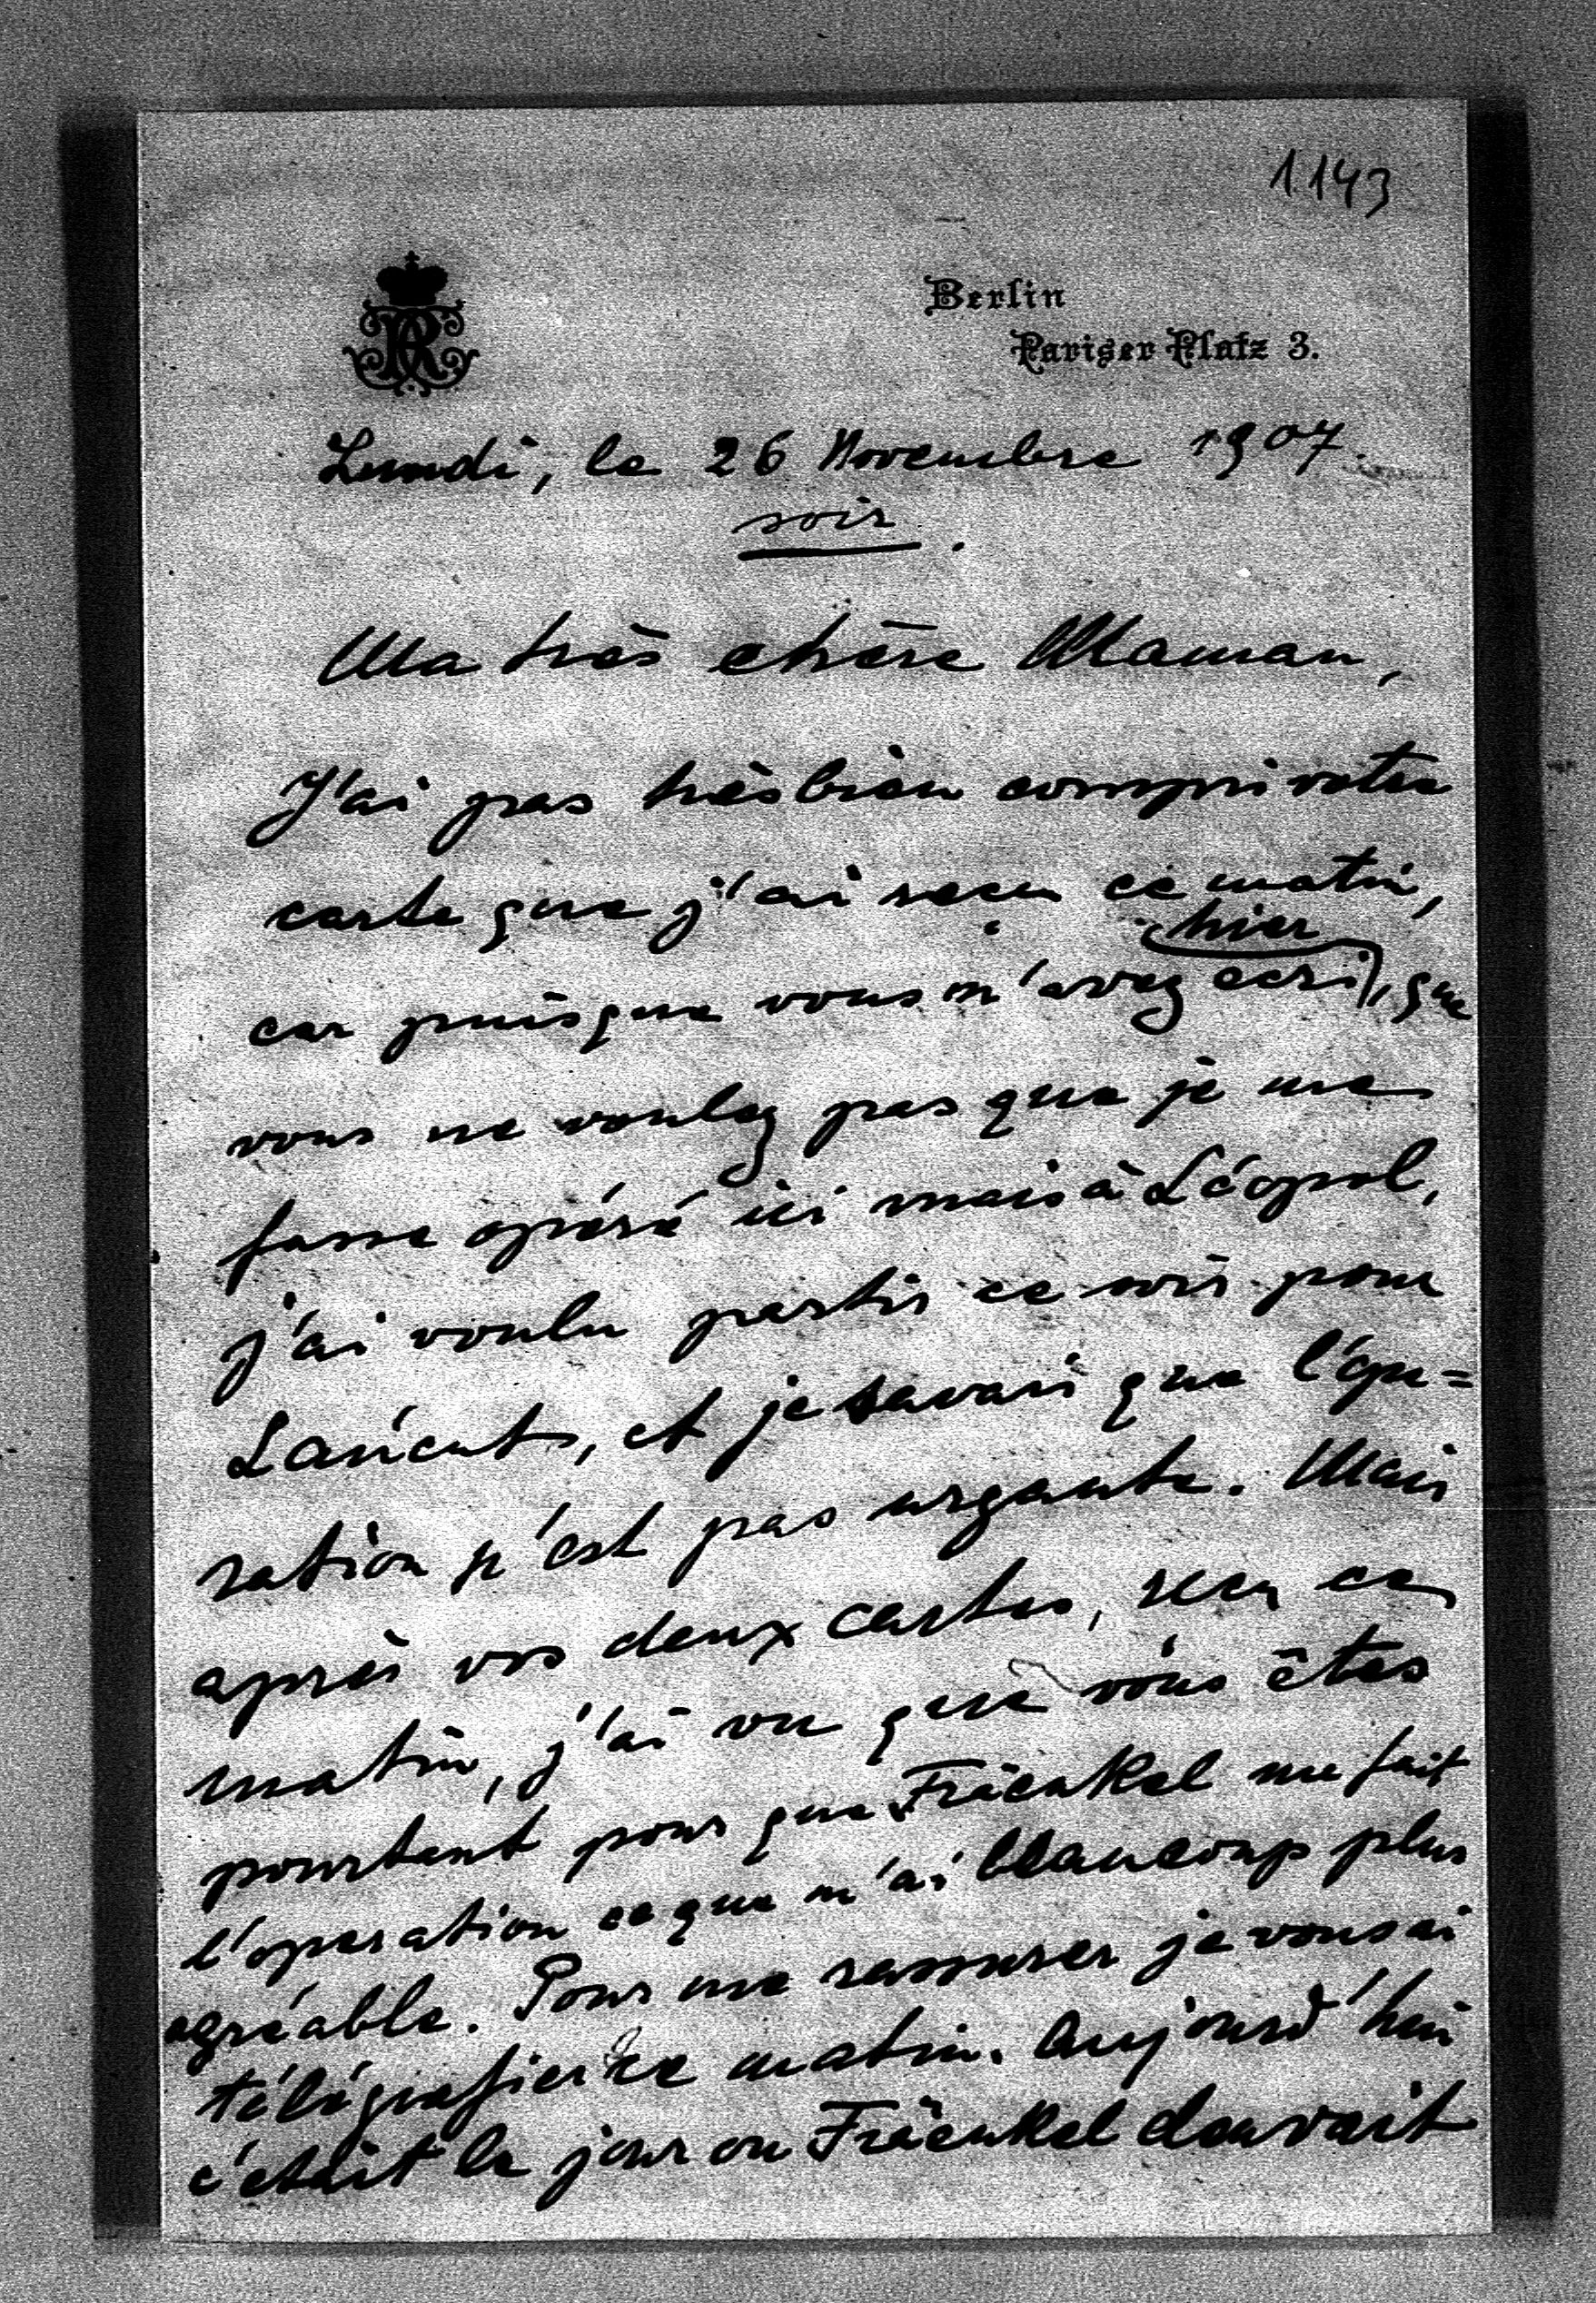 1143
Berlin
Pariser Platz 3.
Lundi, le 26 Novembre 1907.
soir.
Ma très chère Maman,
J'ai pas très bien compri votre
carte que j'ai reçu ce matin,
hier
car puisque vous m'avez ecri, que
vous ne voulez pas que je me
fasse opéré ici mais à Léopol,
j'ai voulu partir ce soir pour
Łańcut, et je savais que l'opé=
ration n'est pas urgante. Mais
après vos deux cartes, recu ce
matin, j'ai vu que vous êtes
pourtant pour que Fräenkel me fait
l'operation ce que m'ai beaucoup plus
agréable. Pour me rassurer je vous ai
télégrafier ce matin. Aujourd'hui
c'etait le jour ou Fräenkel deuvait